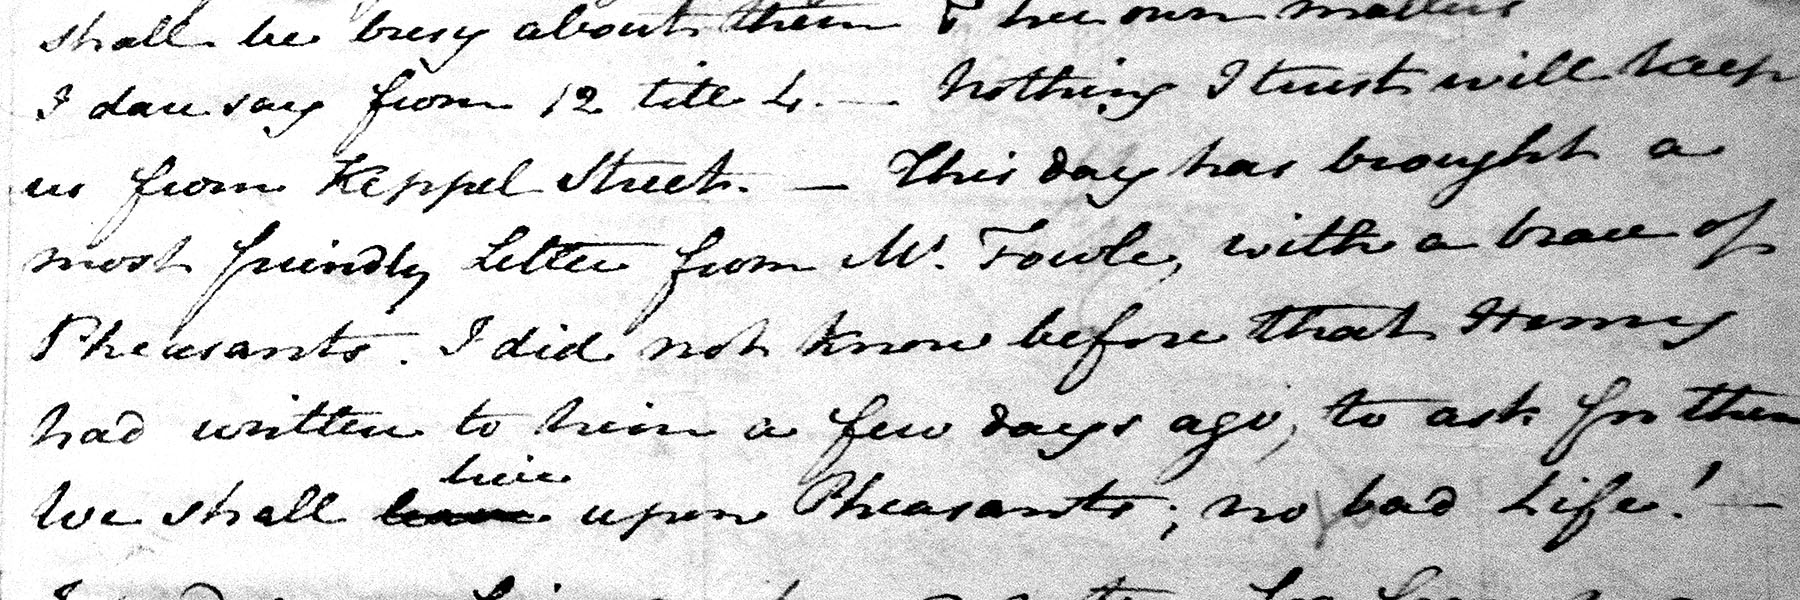 shall be busy about them & her own matters
I dare say from 12 till 4. — Nothing I trust will keep
us from Keppel Street. — This day has brought a
most friendly Letter from Mr. Fowle, with a brace of
Pheasants. I did not know before that Henry
had written to him a few days ago, to ask for them
We shall live upon Pheasants; no bad Life! —